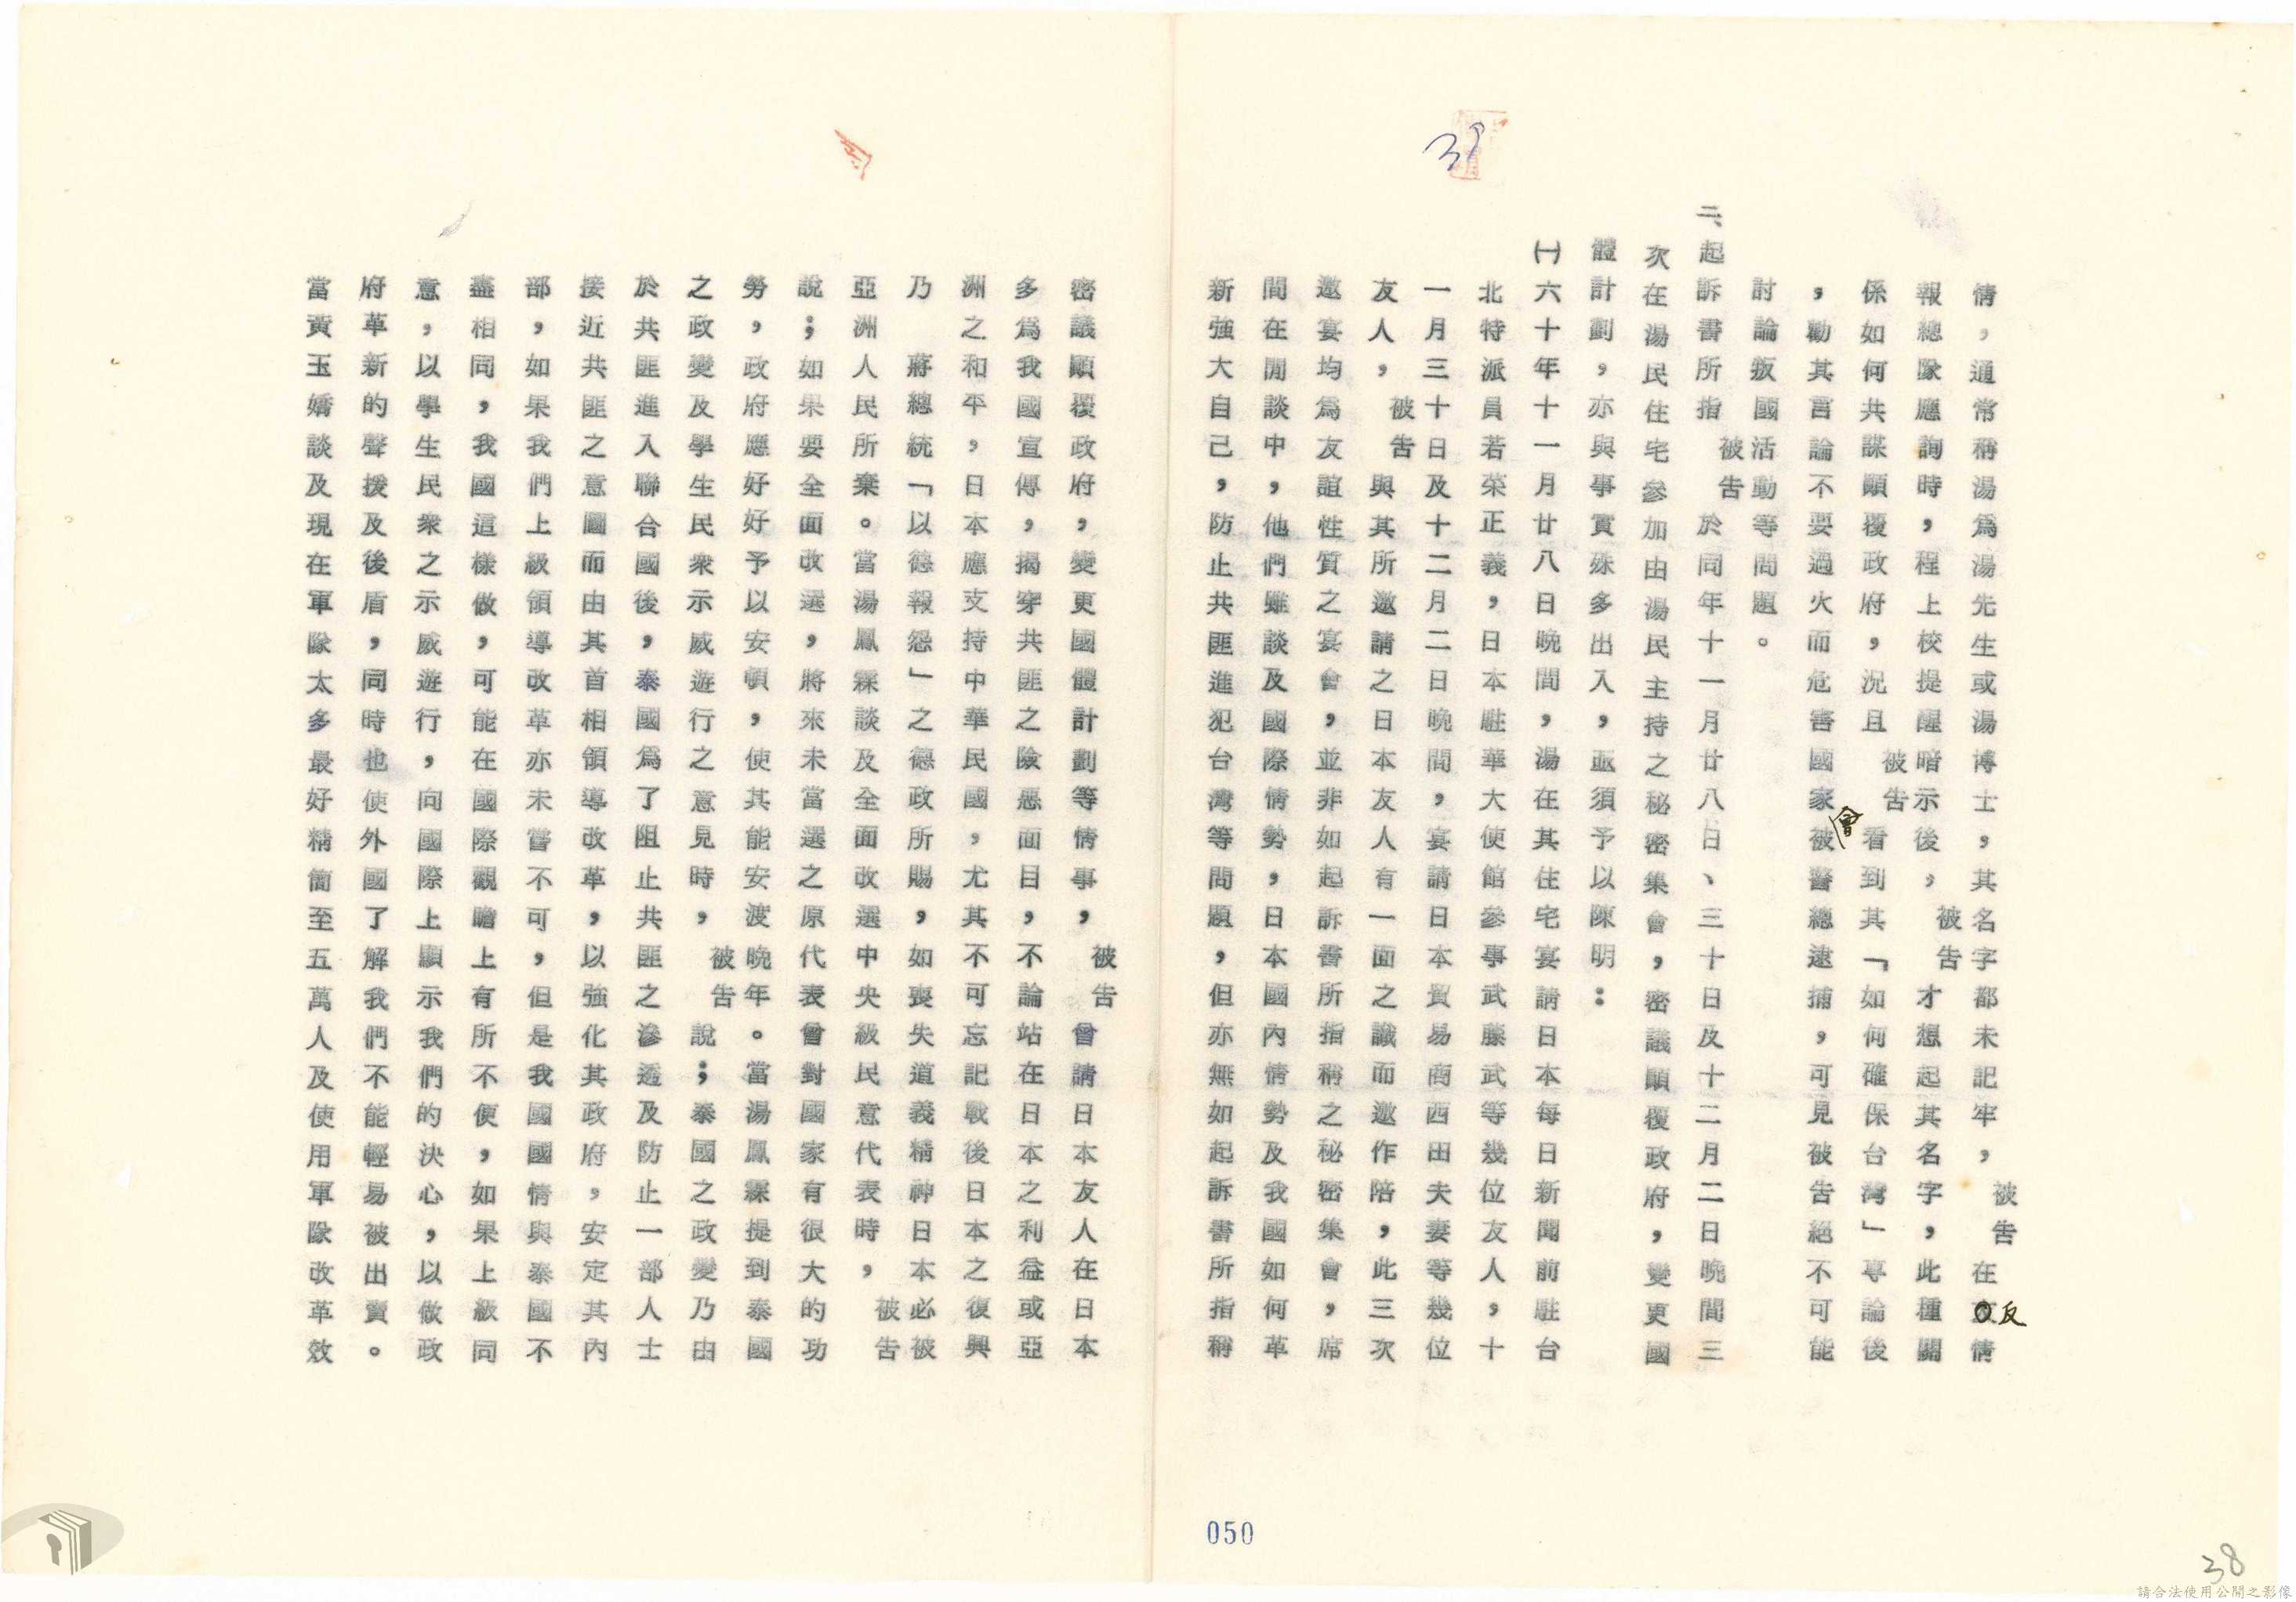 情，通常稱湯為湯先生或湯博士，其名字都未記牢，被告在友情
報總隊應詢時，程上校提醒暗示後，被告才想起其名字，此種關
係如何共謀顛覆政府，況且被告會看到其「如何確保台灣」專論後
，勸其言論不要過火而危害國家被警總逮捕，可見被告絕不可能
討論叛國活動等問題。
二、起訴書所指被告於同年十一月廿八日、三十日及十二月二日晚間三
次在湯民住宅參加由湯民主持之秘密集會，密議顛覆政府，變更國
體計劃，亦與事實殊多出入，亟須予以陳明：
㈠六十年十一月廿八日晚間，湯在其住宅宴請日本每日新聞前駐台
北特派員若菜正義，日本駐華大使館參事武藤武等幾位友人，十
一月三十日及十二月二日晚間，宴請日本貿易商西田夫妻等幾位
友人，被告與其所邀請之日本友人有一面之識而邀作陪，此三次
邀宴均為友誼性質之宴會，並非如起訴書所指稱之秘密集會，席
間在閒談中，他們雖談及國際情勢，日本國內情勢及我國如何革
新強大自己，防止共匪進犯台灣等問題，但亦無如起訴書所指稱
密議顛覆政府，變更國體計劃等情事，被告曾請日本友人在日本
多為我國宣傳，揭穿共匪之險惡面目，不論站在日本之利益或亞
洲之和平，日本應支持中華民國，尤其不可忘記戰後日本之復興
乃　蔣總統「以德報怨」之德政所賜，如喪失道義精神日本必被
亞洲人民所棄。當湯鳳霖談及全面改選中央級民意代表時，被告
說；如果要全面改選，將來未當選之原代表曾對國家有很大的功
勞，政府應好好予以安頓，使其能安渡晚年。當湯鳳霖提到泰國
之政變及學生民眾示威遊行之意見時，被告說；泰國之政變乃由
於共匪進入聯合國後，泰國為了阻止共匪之滲透及防止一部人士
接近共匪之意圖而由其首相領導改革，以強化其政府，安定其內
部，如果我們上級領導改革亦未嘗不可，但是我國國情與泰國不
盡相同，我國這樣做，可能在國際觀瞻上有所不便，如果上級同
意，以學生民眾之示威遊行，向國際上顯示我們的決心，以做政
府革新的聲援及後盾，同時也使外國了解我們不能輕易被出賣。
當黃玉嬌談及現在軍隊太多最好精簡至五萬人及使用軍隊改革效
050
38
請合法使用公開之影像